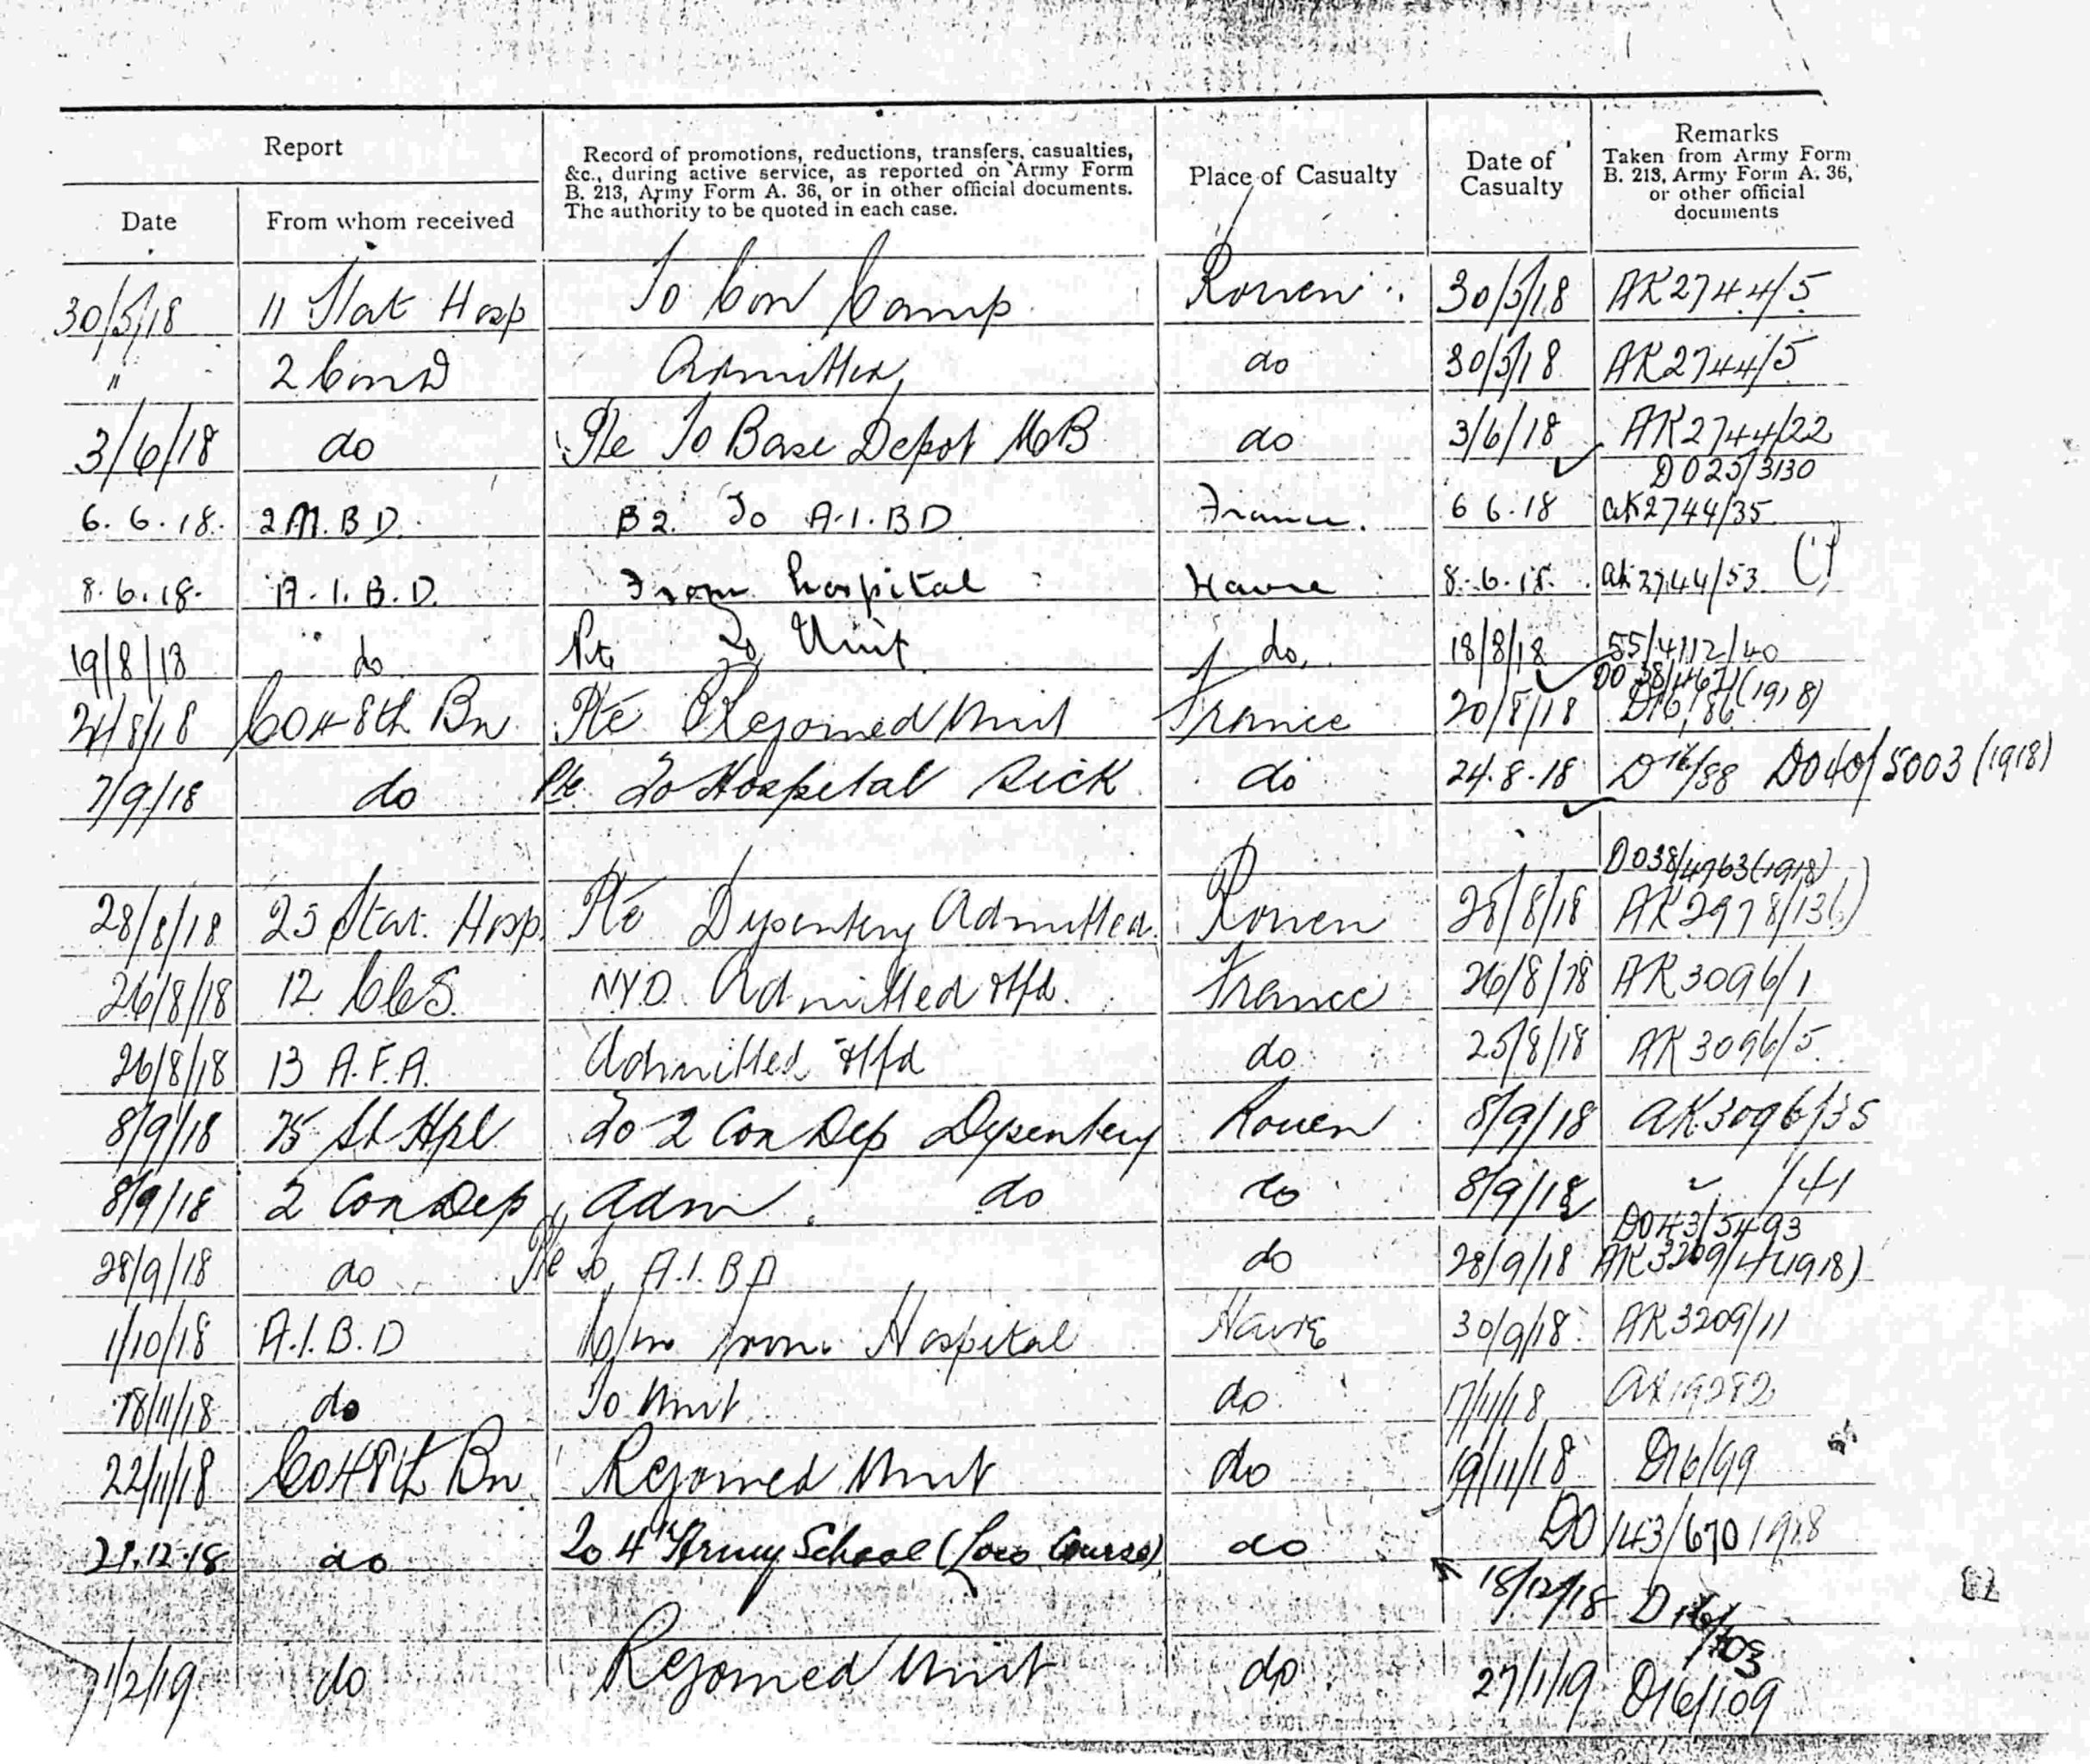 Report
Record of promotions, reductions, transfers, casualties,
&c., during active service, as reported on Army Form
B. 213, Army Form A. 36, or in other official documents.
The authority to be quoted in each case.
Place of Casualty
Date of
Casualty
Remarks
Taken from Army Form
B. 213, Army Form A. 36,
or other official
documents
Date From whom received
30/5/18 11 Stat Hosp To Con Camp Rouen 30/5/18 AK2744/5
" 2 Con D Admitted do 30/5/18 AK2744/5
3/6/18 do Pte To Base Depot do 3/6/18 AK2744/22
DO25/3130
6.6.18. 2 M.B.D. B2. To A.I.BD France. 6 6.18 aK2744/35
8.6.18. A.I.B.D. From hospital Havre 8.6.18. aK2744/53
19/8/18 do Pte To Unit do 18/8/18 55/4112/40
DO 38/4621 (1918)
21/8/18 Co 48th Bn Pte Rejoined Unit France 20/8/18 D16/86
7/9/18 do Pte To Hospital Sick do 24.8.18 D16/88 DO40/5003 (1918)
DO38/4763 (1918)
28/8/18 25 Stat. Hosp. Pte Dysentery Admitted Rouen 28/8/18 AK2978/136
26/8/18 12 CCS. NYD. Admitted tfd. France 26/8/18 AK3096/1
26/8/18 13 A.F.A. Admitted tfd do 25/8/18 AK3096/5
8/9/18 25 St Hpl To 2 Con Dep Dysentery Rouen 8/9/18 aK3096/35
8/9/18 2 Con Dep Adm. do do 8/9/18 " /41
DO43/5493
28/9/18 do Pte to A.I.BD do 28/9/18 AK3209/4 (1918)
1/10/18 A.I.B.D from Hospital Havre 30/9/18 AK3209/11
18/11/18 do To Unit do 17/11/18 aK19282
22/11/18 Co 48th Bn Rejoined Unit do 19/11/18 D16/99
DO/43/670 1918
21.12.18 do To 4th Army School (Loco Course) do
18/12/18 D16/103
1/2/19 do Rejoined Unit do 27/1/19 D16/109